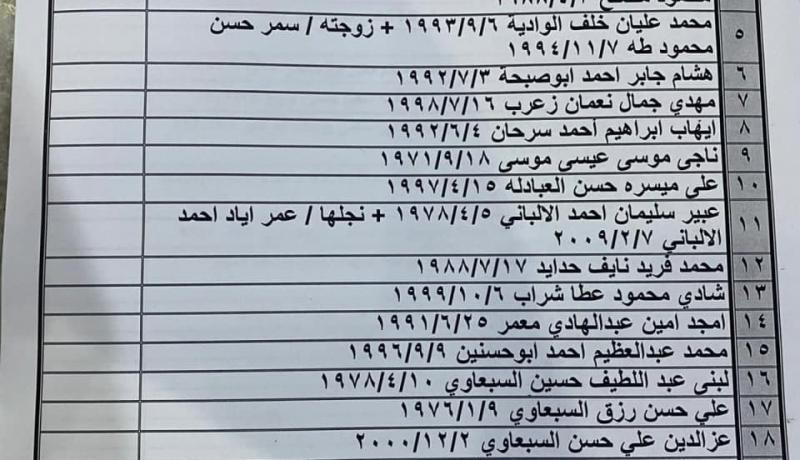 ٥ محمد عليان خلف الوادية ١٩٩٣/٩/٦ + زوجته / سمر حسن
محمود طه ١٩٩٤/١١/٧
٦ هشام جابر احمد ابوصبحة ١٩٩٢/٧/٣
٧ مهدي جمال نعمان زعرب ١٩٩٨/٧/١٦
٨ ايهاب ابراهيم أحمد سرحان ١٩٩٢/٦/٤
٩ ناجى موسى عيسى موسى ١٩٧١/٩/١٨
١٠ على ميسره حسن العبادله ١٩٩٧/٤/١٥
١١ عبير سليمان احمد الالباني ١٩٧٨/٤/٥ + نجلها / عمر اياد احمد
الالباني ٢٠٠٩/٢/٧
١٢ محمد فريد نايف حدايد ١٩٨٨/٧/١٧
١٣ شادي محمود عطا شراب ١٩٩٩/١٠/٦
١٤ امجد امين عبدالهادي معمر ١٩٩١/٦/٢٥
١٥ محمد عبدالعظيم احمد ابوحسنين ١٩٩٦/٩/٩
١٦ لبنى عبد اللطيف حسين السبعاوي ١٩٧٨/٤/١٠
١٧ علي حسن رزق السبعاوي ١٩٧٦/١/٩
١٨ عزالدين علي حسن السبعاوي ٢٠٠٠/١٢/٢